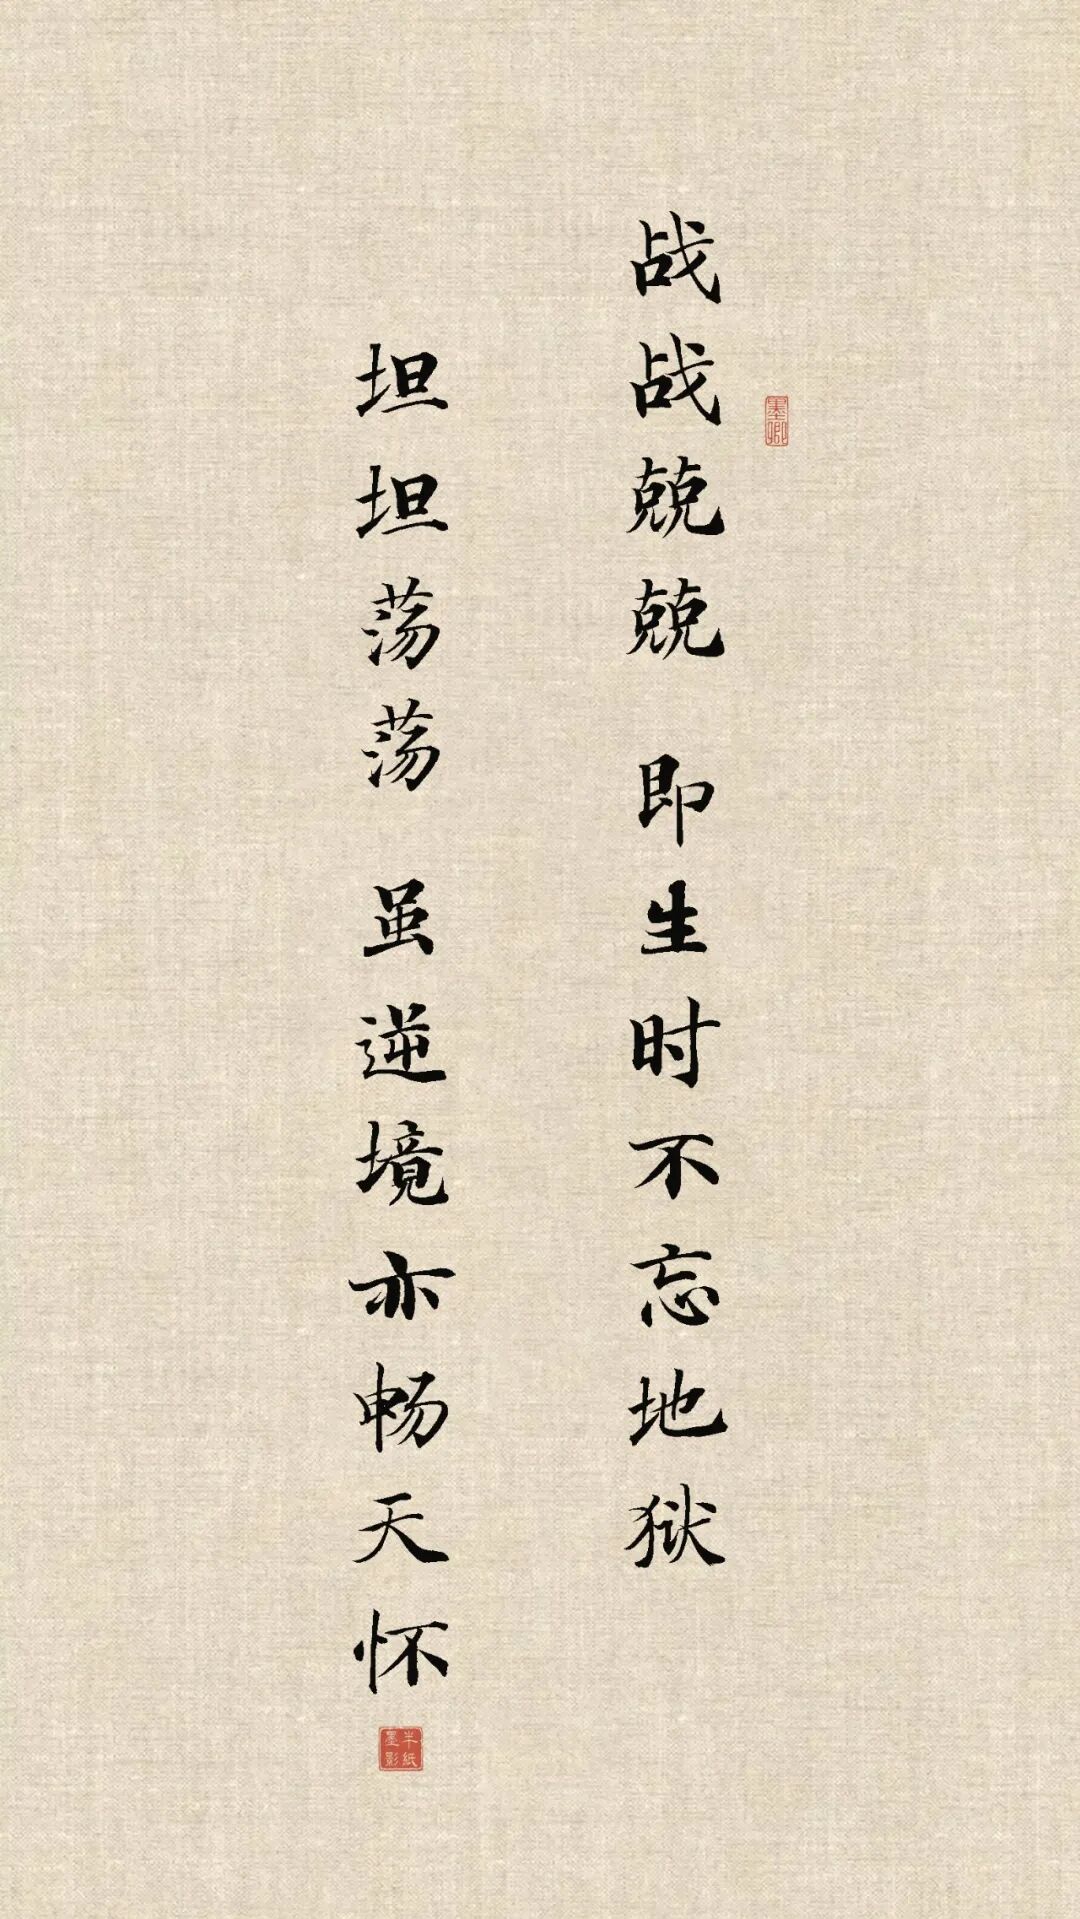 战战兢兢 即生时不忘地狱
坦坦荡荡 虽逆境亦畅天怀
墨卿
半纸墨影